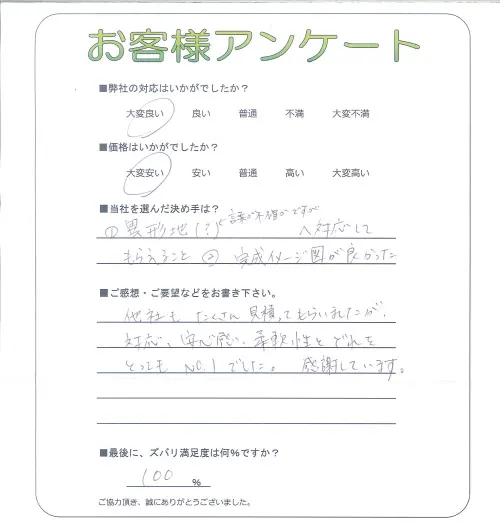 お客様アンケート
■弊社の対応はいかがでしたか？
大変良い 良い 普通 不満 大変不満
■価格はいかがでしたか？
大変安い 安い 普通 高い 大変高い
■当社を選んだ決め手は？
言葉が不確かですが
①異形地(？)へ対応して
もらえること ② 完成イメージ図が良かった
■ご感想・ご要望などをお書き下さい。
他社も たくさん 見積ってもらいましたが、
対応、安心感、柔軟性と どれを
とっても NO.1 でした。 感謝しています。
■最後に、ズバリ満足度は何％ですか？
100 ％
ご協力頂き、誠にありがとうございました。